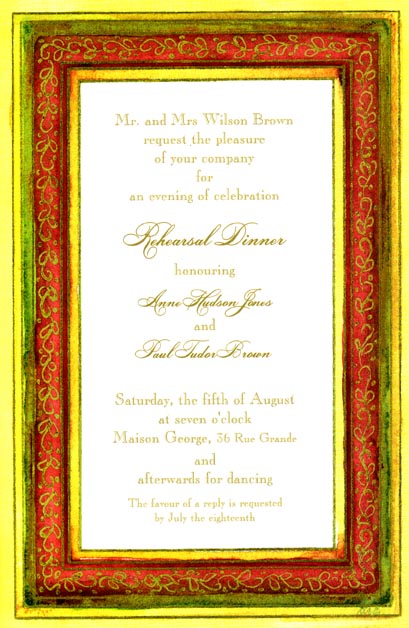 Mr. and Mrs Wilson Brown
request the pleasure
of your company
for
an evening of celebration
Rehearsal Dinner
honouring
Anne Hudson Jones
and
Paul Tudor Brown
Saturday, the fifth of August
at seven o'clock
Maison George, 36 Rue Grande
and
afterwards for dancing
The favour of a reply is requested
by July the eighteenth